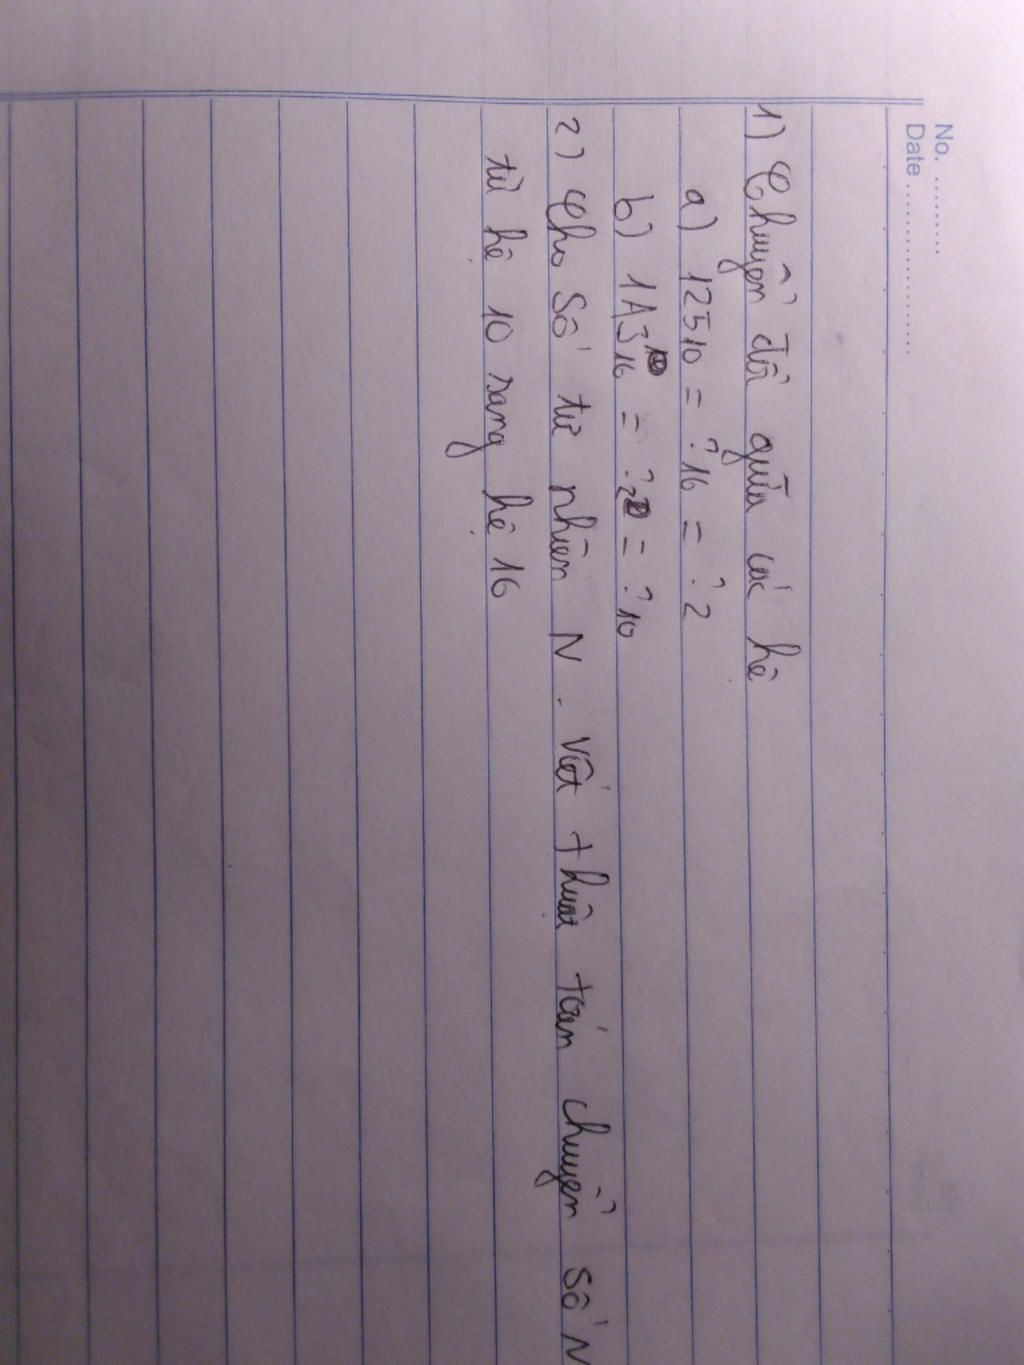 No. ..........
Date ......................
1) Chuyển đổi giữa các hệ
a) 125₁₀ = ?₁₆ = ?₂
b) 1A3₁₆ = ?₂ = ?₁₀
2) Cho số tự nhiên N. Viết thuật toán chuyển số N
từ hệ 10 sang hệ 16